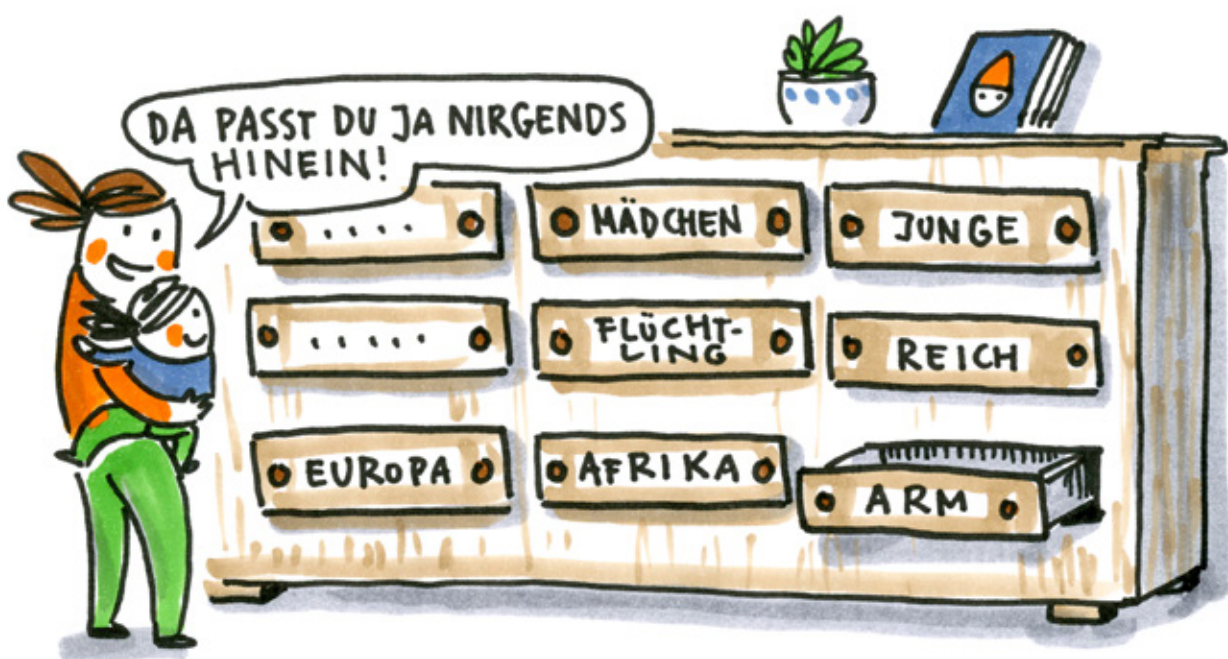 DA PASST DU JA NIRGENDS
HINEIN!
....
MÄDCHEN
JUNGE
.....
FLÜCHT-
LING
REICH
EUROPA
AFRIKA
ARM